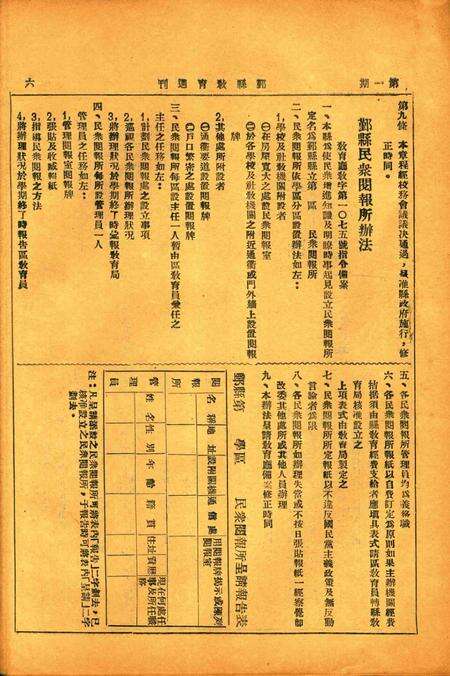 第一期
鄞縣教育週刊
六
第九條　本章程經校務會議議決通過，呈准縣政府施行，修
正時同。
鄞縣民衆閱報所辦法
教育廳教字第一〇七五號指令備案
一、本縣爲使民衆增進知識及明瞭時事起見設立民衆閱報所
定名爲鄞縣縣立第　區　民衆閱報所
二、民衆閱報所依學區分區設置辦法如左：
1,學校及社教機關附設者
㊀在房屋寬大之處設民衆閱報室
㊁於各學校及社教機關之附近通衢或門外牆上設置閱報
牌
2,其他處所附設者
㊀通衢要道設置閱報牌
㊁戶口繁密之處設民衆閱報室
三、民衆閱報所每區設主任一人暫由區教育員兼任之
主任之任務如左：
1,計劃民衆閱報處之設立事項
2,巡視各民衆閱報所辦理狀況
3,將辦理狀況於學期終了時彙報教育局
四、民衆閱報所每所設管理員一人
管理員之任務如左：
1,管理閱報室閱報牌
2,張貼及收藏報紙
3,指導民衆閱報之方法
4,將辦理狀況於學期終了時報告區教育員
五、各民衆閱報所管理員均爲義務職
六、各民衆閱報所報紙以自費訂定爲原則如果主辦機關經費
拮据須由縣教育經費支給者應填具表式請區教育員轉縣教
育局核准設立之
上項表式由教育局製定之
七、民衆閱報所所定報紙以不違反國民黨主義政策及無反動
言論者爲限
八、各民衆閱報所如辦理失當或不按日張貼報紙一經察覺卽
改委其他處所或其他人員辦理
九、本辦法呈請教育廳備案修正時同
鄞縣第　學區　民衆閱報所呈請報告表
閱報所
名稱
地址
設附關機
通信處
用閱報牌揭示或陳列閱報室
管理員
姓名
性別
年齡
籍貫
住址
資歷
現在何處任事及所任職務
注：凡呈請添設之民衆閱報所可將表內「報告」二字劃去，已
經准設立之民衆閱報所，于報告時可將表內「呈請」二字
劃去。